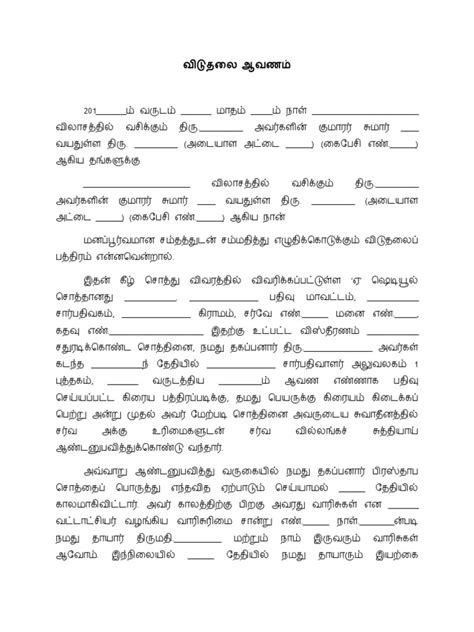 விடுதலை ஆவணம்
201______ம் வருடம் ______ மாதம் ____ம் நாள் ________________
விலாசத்தில் வசிக்கும் திரு.________ அவர்களின் குமாரர் சுமார் ___
வயதுள்ள திரு. ______ (அடையாள அட்டை ______) (கைபேசி எண்.______)
ஆகிய தங்களுக்கு
________________ விலாசத்தில் வசிக்கும் திரு.________
அவர்களின் குமாரர் சுமார் ___ வயதுள்ள திரு. ______ (அடையாள
அட்டை ______) (கைபேசி எண்.____) ஆகிய நான்
மனப்பூர்வமான சம்தத்துடன் சம்மதித்து எழுதிக்கொடுக்கும் விடுதலைப்
பத்திரம் என்னவென்றால்.
இதன் கீழ் சொத்து விவரத்தில் விவரிக்கப்பட்டுள்ள 'ஏ' ஷெடியூல்
சொத்தானது ________, ________ பதிவு மாவட்டம், ________
சார்பதிவகம், ________ கிராமம், சர்வே எண்._____ மனை எண். ____,
கதவு எண். ______ இதற்கு உட்பட்ட விஸ்தீரணம் ________
சதுரடிக்கொண்ட சொத்தினை, நமது தகப்பனார் திரு.________ அவர்கள்
கடந்த ________ந் தேதியில் ________ சார்பதிவாளர் அலுவலகம் 1
புத்தகம், ______ வருடத்திய ________ம் ஆவண எண்ணாக பதிவு
செய்யப்பட்ட கிரைய பத்திரப்படிக்கு, தமது பெயருக்கு கிரையம் கிடைக்கப்
பெற்று அன்று முதல் அவர் மேற்படி சொத்தினை அவருடைய சுவாதீனத்தில்
சர்வ அக்கு உரிமைகளுடன் சர்வ வில்லங்கச் சுத்தியாய்
ஆண்டனுபவித்துக்கொண்டு வந்தார்.
அவ்வாறு ஆண்டனுபவித்து வருகையில் நமது தகப்பனார் பிரஸ்தாப
சொத்தைப் பொருத்து எந்தவித ஏற்பாடும் செய்யாமல் _____ தேதியில்
காலமாகிவிட்டார். அவர் காலத்திற்கு பிறகு அவரது வாரிசுகள் என _____
வட்டாட்சியர் வழங்கிய வாரிசுரிமை சான்று எண்.____ நாள்.____ன்படி
நமது தாயார் திருமதி.______ மற்றும் நாம் இருவரும் வாரிசுகள்
ஆவோம். இந்நிலையில் _____ தேதியில் நமது தாயாரும் இயற்கை